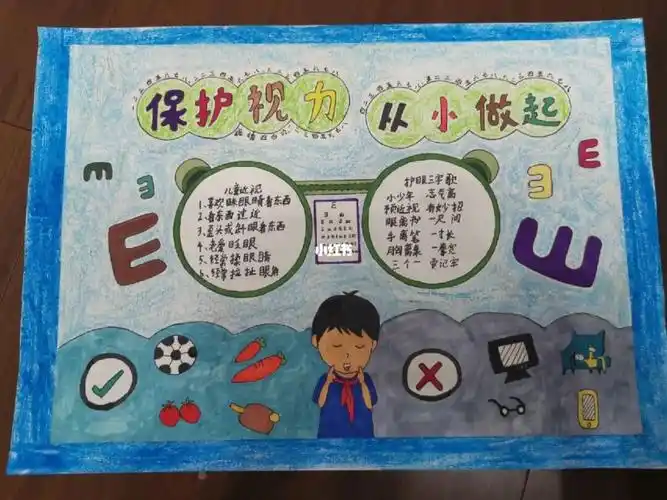 保护视力 从小做起
儿童近视
1、喜欢眯眼睛看东西
2、看东西过近
3、歪头或斜眼看东西
4、老爱眨眼
5、经常揉眼睛
6、经常拉扯眼角
护眼三字歌
小少年 志气高
预近视 有妙招
眼离书 一尺间
手离笔 一寸长
胸离桌 一拳宽
三个一 要记牢
小红书
m
E
E
E
E
E
E